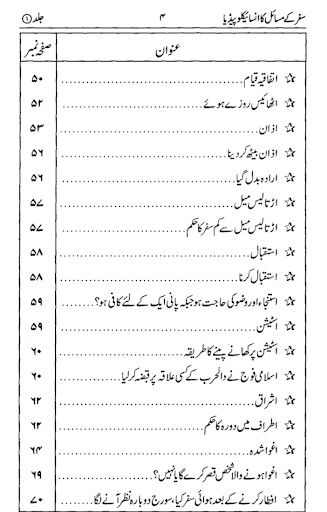 سفر کے مسائل کا انسائیکلوپیڈیا ۴ جلد ۱
عنوان صفحہ نمبر
☆ اتفاقیہ قیام.................... ۵۰
☆ اٹھائیس روزے ہوئے.................... ۵۲
☆ اذان.................... ۵۳
☆ اذان بیٹھ کر دینا.................... ۵۶
☆ ارادہ بدل گیا.................... ۵۶
☆ اڑتالیس میل.................... ۵۷
☆ اڑتالیس میل سے کم سفر کا حکم.................... ۵۷
☆ استقبال.................... ۵۸
☆ استقبال کرنا.................... ۵۸
☆ استنجاء اور وضو کی حاجت ہو جبکہ پانی ایک کے لئے کافی ہو؟.......... ۵۹
☆ اسٹیشن.................... ۵۹
☆ اسٹیشن پر کھانے پینے کا طریقہ.................... ۶۰
☆ اسلامی فوج نے دالحرب کے کسی علاقہ پر قبضہ کر لیا.......... ۶۰
☆ اشراق.................... ۶۲
☆ اطراف میں دورہ کا حکم.................... ۶۲
☆ اغوا شدہ.................... ۶۴
☆ اغوا ہونے والا شخص قصر کرے گا یا نہیں؟.......... ۶۹
☆ افطار کرنے کے بعد ہوائی سفر کیا، سورج دوبارہ نظر آنے لگا.......... ۷۰